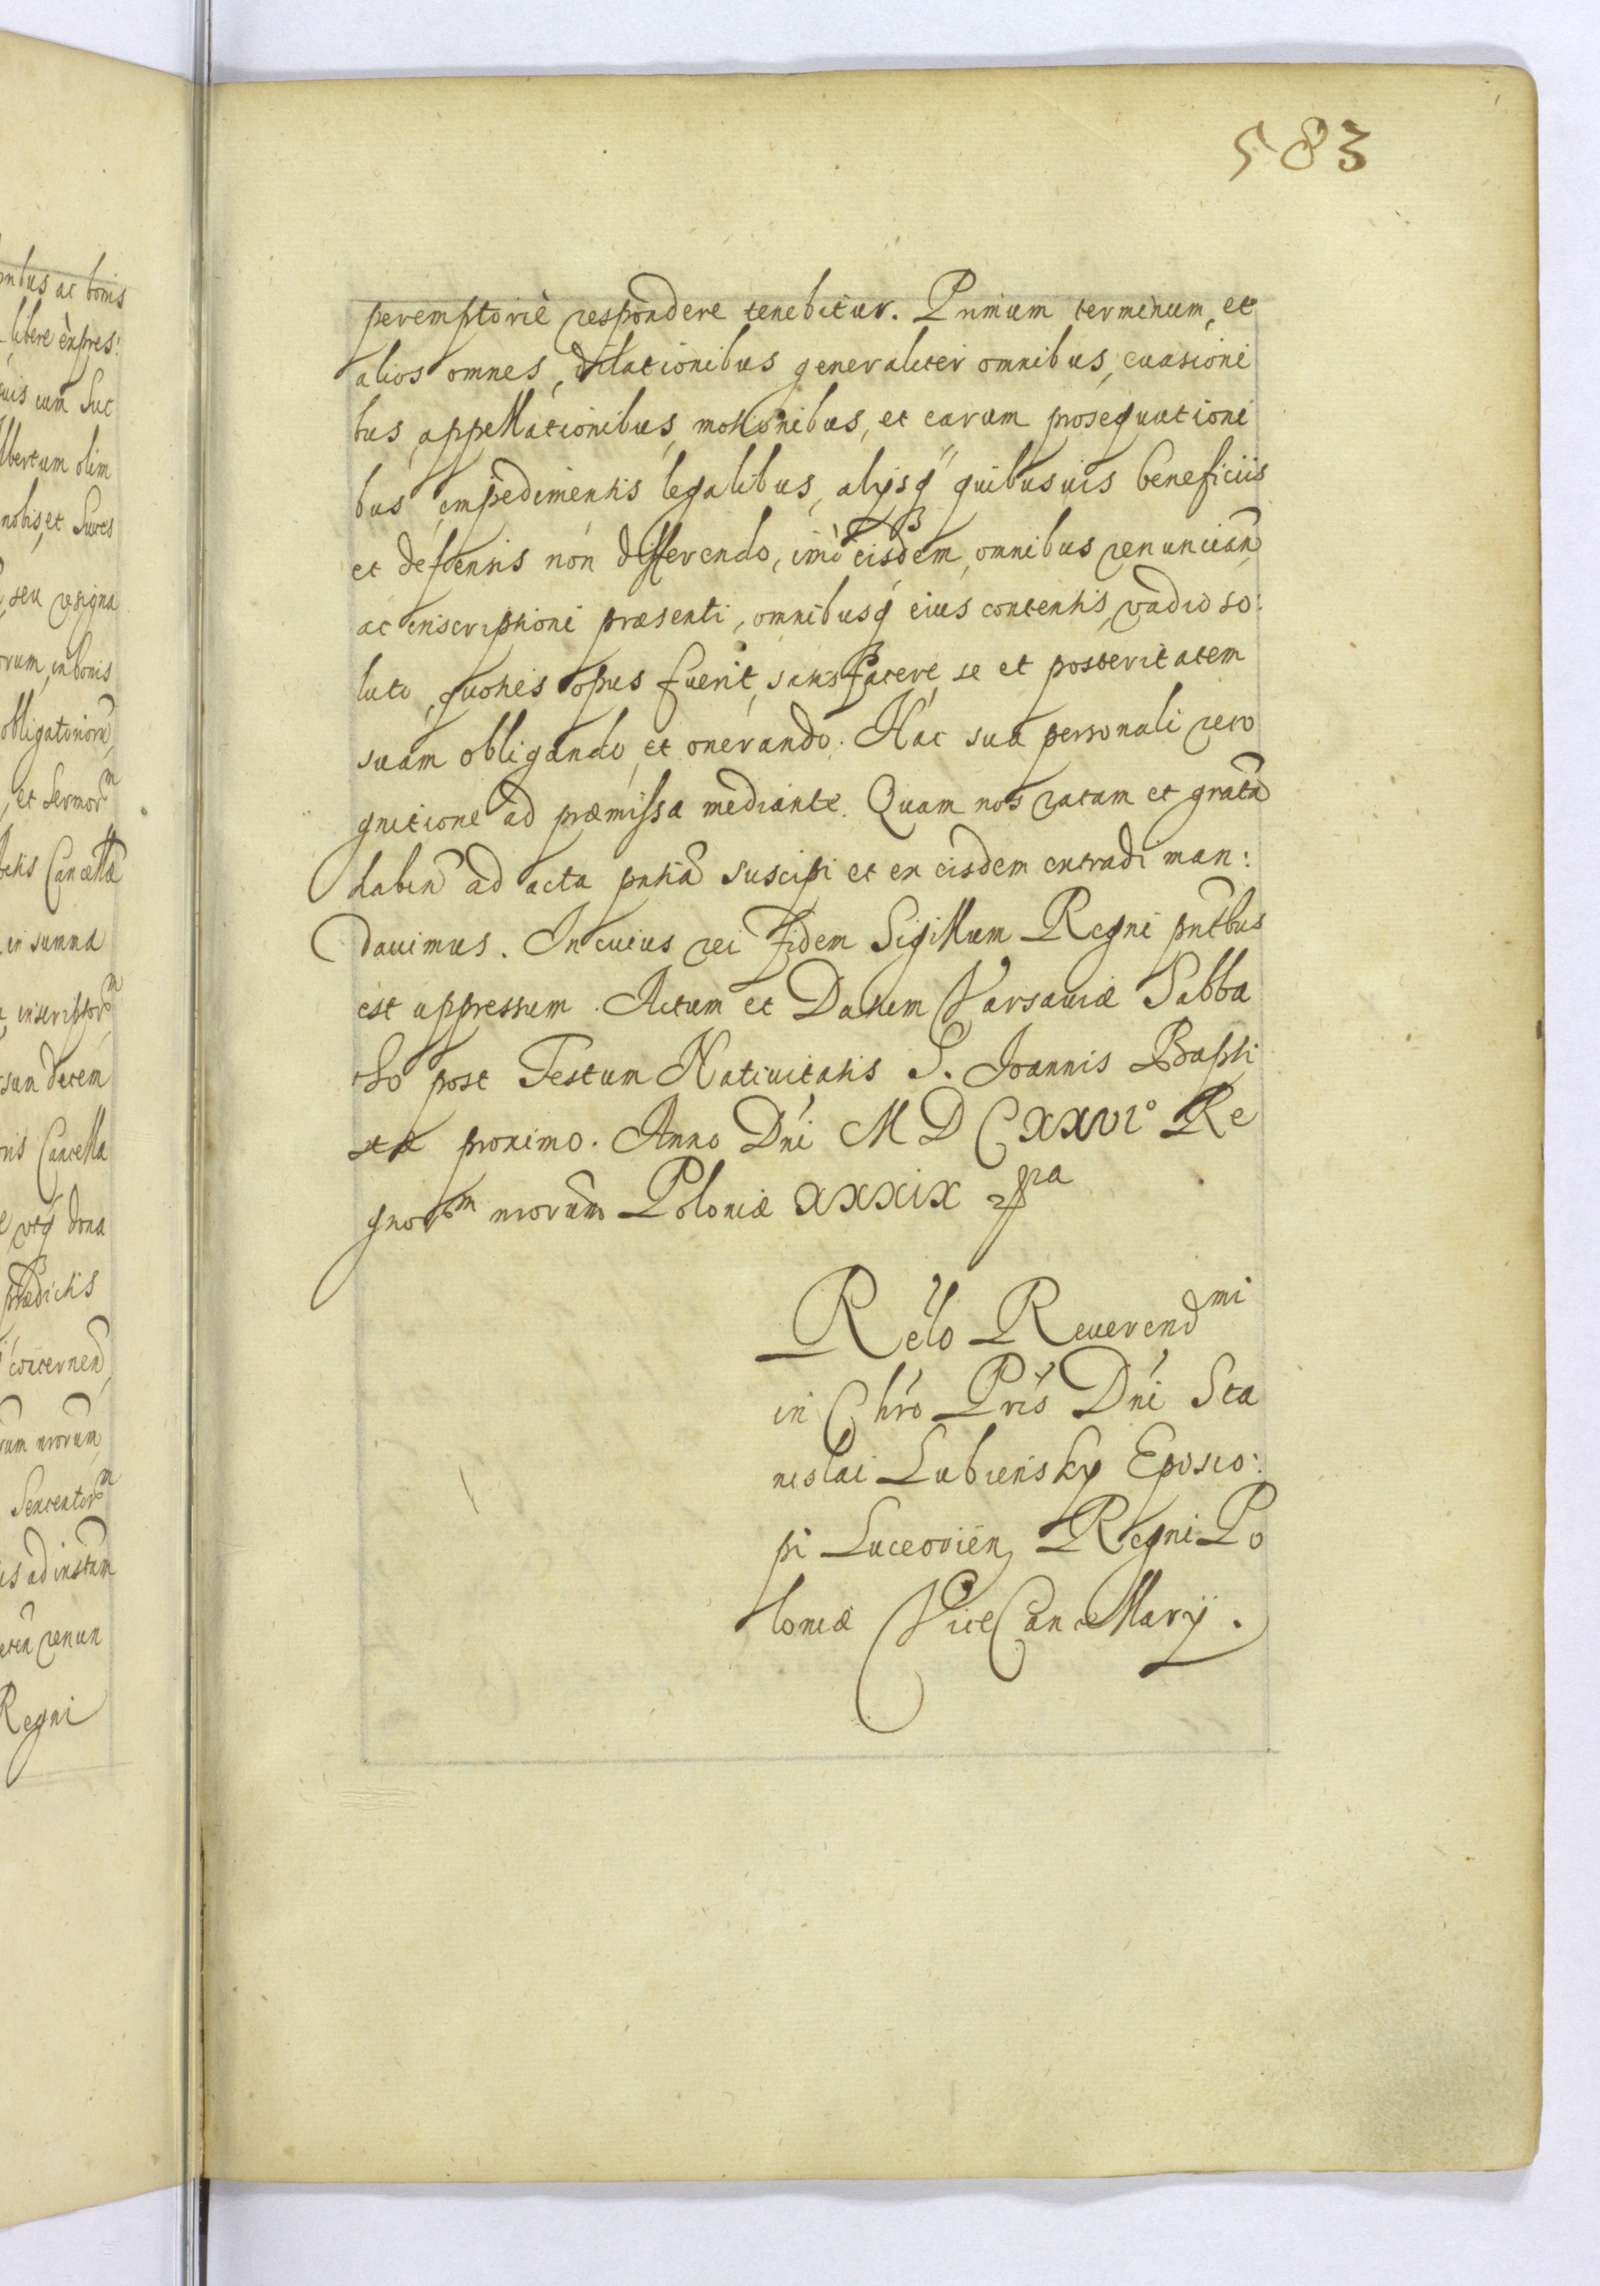 583
peremptoriè respondere tenebitur. Primum terminum, et
alios omnes, dilationibus generaliter omnibus, euasioni
bus, appellationibus, motionibus, et earum prosequutioni
bus, impedimentis legalibus, alijsq quibusuis beneficiis
et defensis non differendo, imò eisdem omnibus renuncian̄
ac inscriptioni præsenti, omnibusq́ eius contentis, vadio so:
luto, quoties opus fuerit, satisfacere, se et posteritatem
suam obligando, et onerando. Hac sua personali reco
gnitione ad præmissa mediante. Quam nos ratam et gratã
habeñ ad acta pntiã suscipi et ex eisdem extradi man:
dauimus. In cuius rei fidem Sigillum Regni pntbus
est appressum. Actum et Datum Varsauiæ Sabba
tho post Festum Natiuitatis S. Joannis Bapti
stæ proximo. Anno Dni MDCXXVI° Re
gnorm nrorum Poloniæ XXXIX
Relo Reverendmi
in Chro Pris Dni Sta
nislai Lubiensky Episco:
pi Luceorien, Regni Po
loniæ ViceCancellarij.
onbus ac bonis
libere expres:
suis cum Suc
lbertum olim
nobis, et Succs
, seu resigna
orum, in bonis
obligationem
, et Sermorm
Cancella
in summa
inscriptorm
decem
oris Cancella
dona
prædictis
concernen
rum nrorum
Sentontorm
is ad instam
renun
Regni